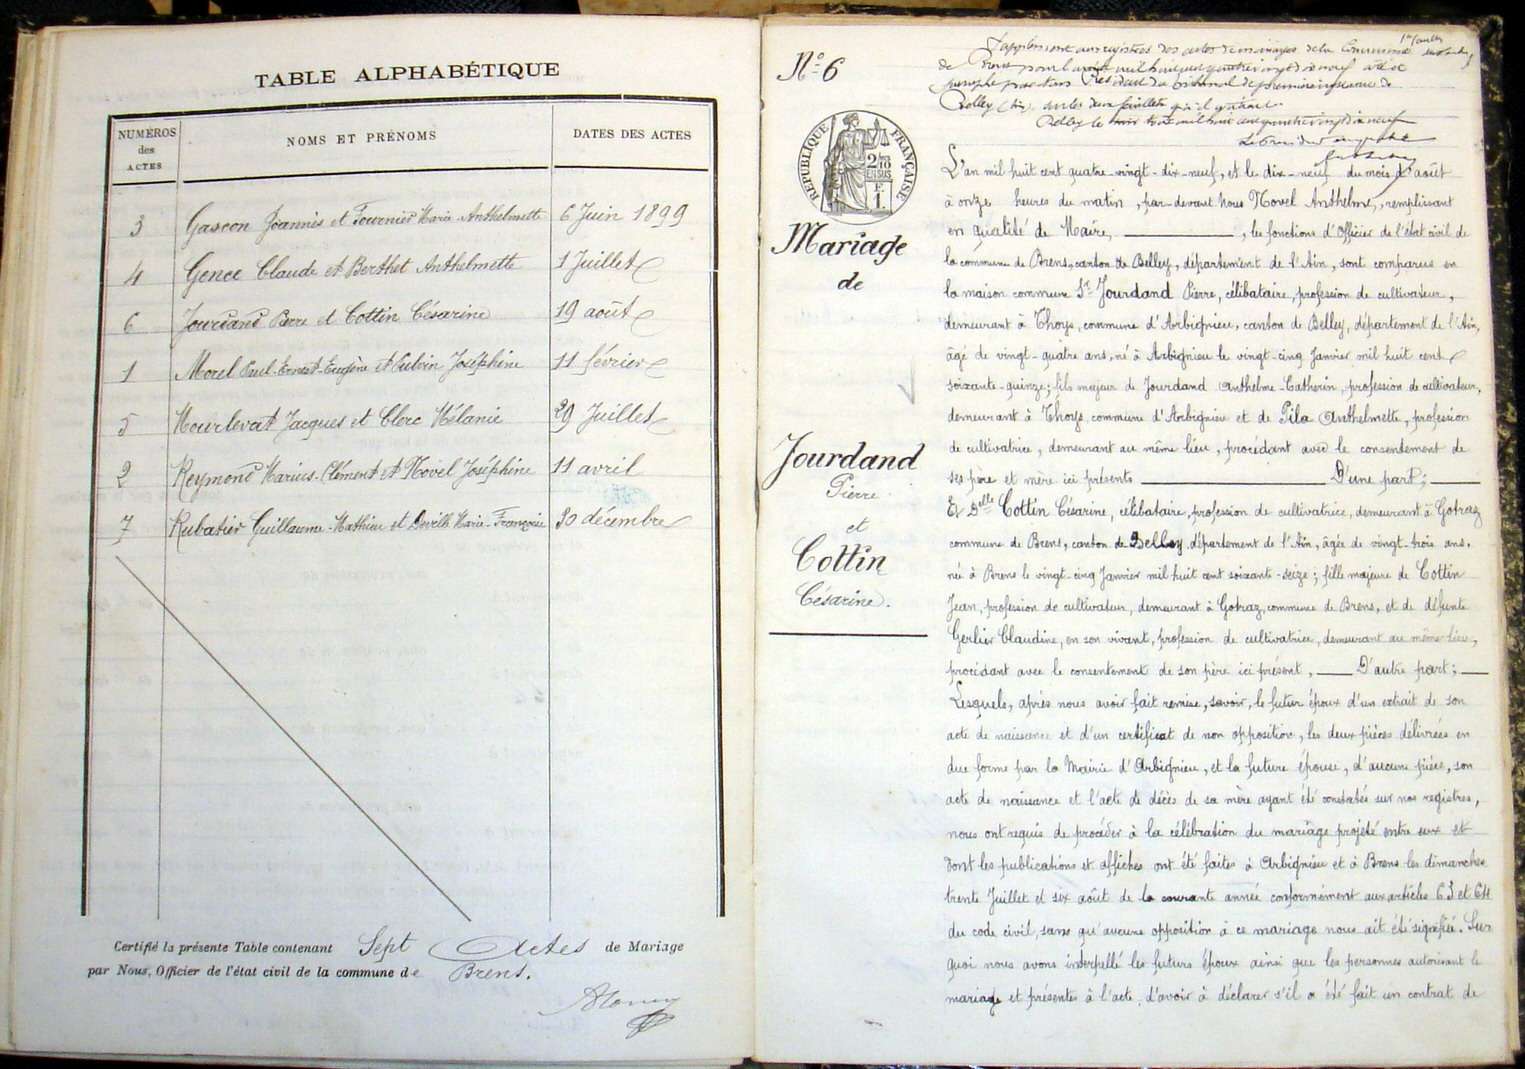 TABLE ALPHABÉTIQUE
NUMÉROS des ACTES
NOMS ET PRÉNOMS
DATES DES ACTES
3 Gascon Joannis et Fournier Marie Anthelmette 6 Juin 1899
4 Gence Claude et Berthet Anthelmette 1 Juillet
6 Jourdand Pierre et Cottin Césarine 19 août
1 Morel Paul-Ernest-Eugène et Joséphine 11 février
5 Mourlevat Jacques et Clerc Mélanie 29 Juillet
2 Reymond Marius-Clément et Novel Joséphine 11 avril
7 Rubatier Guillaume-Mathieu et Marie-Françoise 30 décembre
Certifié la présente Table contenant Sept Actes de Mariage
par Nous, Officier de l'état civil de la commune de Brens.
No 6
RÉPUBLIQUE FRANÇAISE
Mariage
de
Jourdand
Pierre
et
Cottin
Césarine.
L'an mil huit cent quatre-vingt-dix-neuf, et le dix-neuf du mois d'août
à onze heures du matin, par-devant Nous Novel Anthelme, remplissant
en qualité de Maire, les fonctions d'Officier de l'état civil de
la commune de Brens, canton de Belley, département de l'Ain, sont comparus en
la maison commune Sr Jourdand Pierre, célibataire, profession de cultivateur,
demeurant à Thoys, commune d'Arbignieu, canton de Belley, département de l'Ain,
âgé de vingt-quatre ans, né à Arbignieu le vingt-cinq Janvier mil huit cent
soixante-quinze; fils majeur de Jourdand Anthelme Catherin, profession de cultivateur,
demeurant à Thoys commune d'Arbignieu et de Pila Anthelmette, profession
de cultivatrice, demeurant au même lieu, procédant avec le consentement de
ses père et mère ici présents D'une part;
Et Delle Cottin Césarine, célibataire, profession de cultivatrice, demeurant à Gotraz
commune de Brens, canton de Belley département de l'Ain, âgée de vingt-trois ans,
née à Brens le vingt-cinq Janvier mil huit cent soixante-seize; fille majeure de Cottin
Jean, profession de cultivateur, demeurant à Gotraz, commune de Brens, et de défunte
Gerlier Claudine, en son vivant, profession de cultivatrice, demeurant au même lieu,
procédant avec le consentement de son père ici présent, D'autre part;
Lesquels, après nous avoir fait remise, savoir, le futur époux d'un extrait de son
acte de naissance et d'un certificat de non opposition, les deux pièces délivrées en
due forme par la Mairie d'Arbignieu, et la future épouse, d'aucune pièce, son
acte de naissance et l'acte de décès de sa mère ayant été constatés sur nos registres,
nous ont requis de procéder à la célébration du mariage projeté entre eux et
dont les publications et affiches ont été faites à Arbignieu et à Brens les dimanches
trente Juillet et six août de la courante année conformément aux articles 63 et 64
du code civil, sans qu'aucune opposition à ce mariage nous ait été signifiée. Sur
quoi nous avons interpellé les futurs époux ainsi que les personnes autorisant le
mariage et présentes à l'acte, d'avoir à déclarer s'il a été fait un contrat de